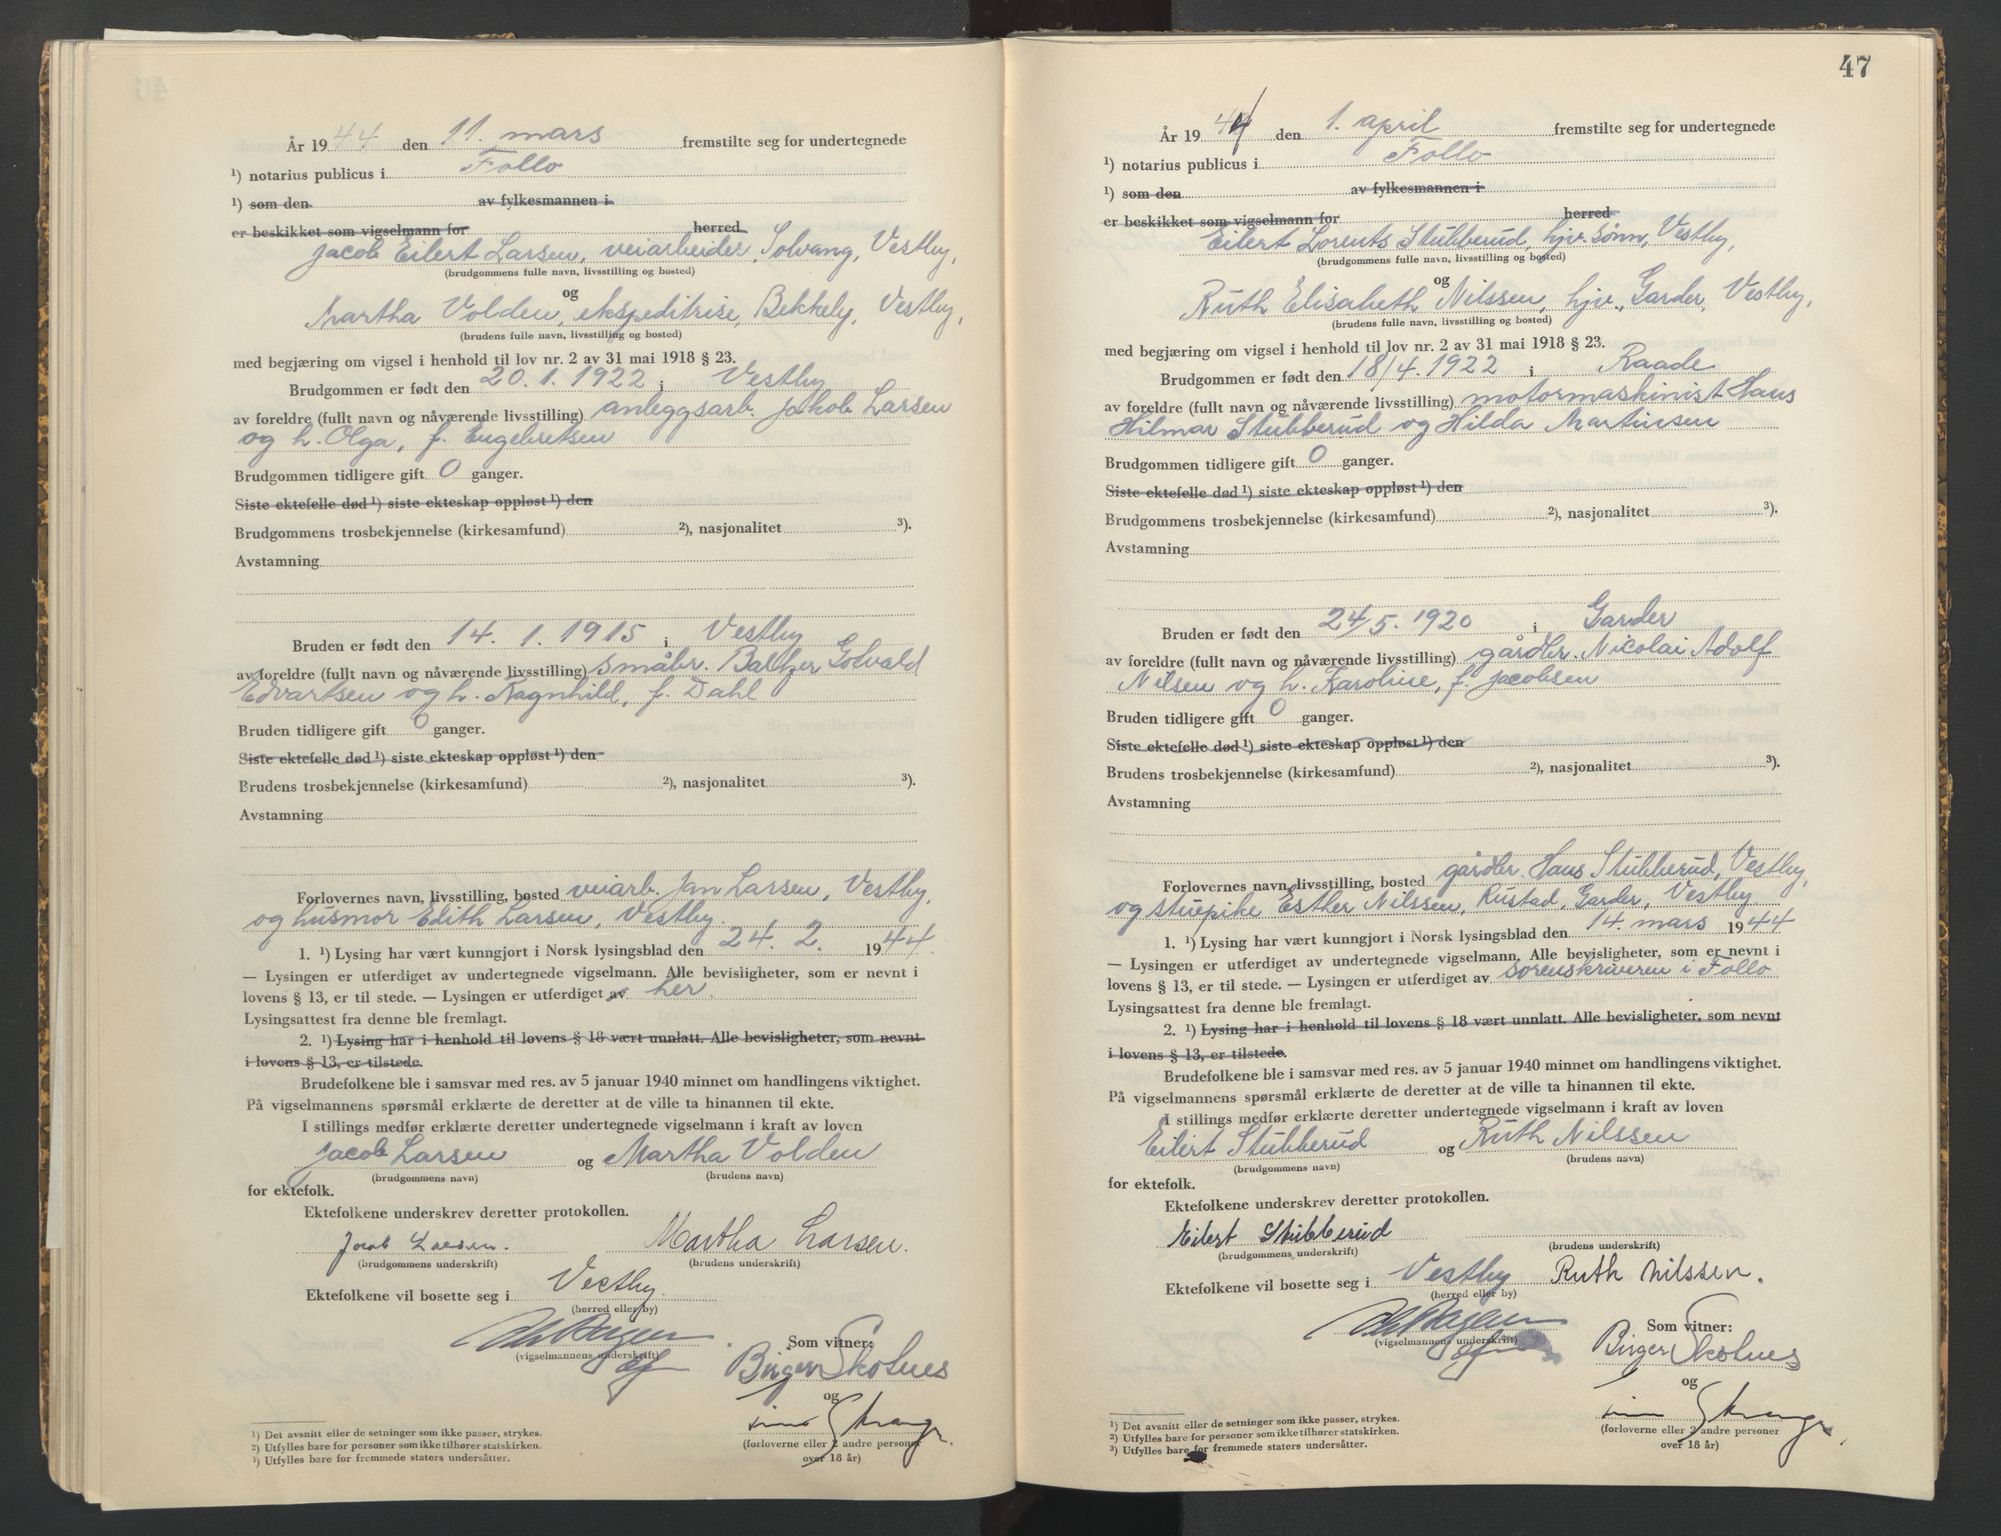 År 1944 den 11. mars fremstilte seg for undertegnede
¹) notarius publicus i Follo
¹) som den av fylkesmannen i
er beskikket som vigselmann for herred
Jacob Eilert Larsen, veiarbeider, Solvang, Vestby,
(brudgommens fulle navn, livsstilling og bosted)
og
Martha Volden, ekspeditrise, Bekkely, Vestby,
(brudens fulle navn, livsstilling og bosted)
med begjæring om vigsel i henhold til lov nr. 2 av 31 mai 1918 § 23.
Brudgommen er født den 20. 1. 1922 i Vestby
av foreldre (fullt navn og nåværende livsstilling) anleggsarb. Jakob Larsen
og h. Olga, f. Engebretsen
Brudgommen tidligere gift 0 ganger.
Siste ektefelle død ¹) siste ekteskap oppløst ¹) den
Brudgommens trosbekjennelse (kirkesamfund) ²), nasjonalitet ³).
Avstamning
Bruden er født den 14. 1. 1915 i Vestby
av foreldre (fullt navn og nåværende livsstilling) småbr. Baltzer Gotvald
Edvartsen og h. Ragnhild, f. Dahl
Bruden tidligere gift 0 ganger.
Siste ektefelle død ¹) siste ekteskap oppløst ¹) den
Brudens trosbekjennelse (kirkesamfund) ²), nasjonalitet ³).
Avstamning
Forlovernes navn, livsstilling, bosted veiarb. Jan Larsen, Vestby,
og husmor Edith Larsen, Vestby.
1. ¹) Lysing har vært kunngjort i Norsk lysingsblad den 24. 2. 1944.
— Lysingen er utferdiget av undertegnede vigselmann. Alle bevisligheter, som er nevnt i
lovens § 13, er til stede. — Lysingen er utferdiget av her.
Lysingsattest fra denne ble fremlagt.
2. ¹) Lysing har i henhold til lovens § 18 vært unnlatt. Alle bevisligheter, som nevnt
i lovens § 13, er tilstede.
Brudefolkene ble i samsvar med res. av 5 januar 1940 minnet om handlingens viktighet.
På vigselmannens spørsmål erklærte de deretter at de ville ta hinannen til ekte.
I stillings medfør erklærte deretter undertegnede vigselmann i kraft av loven
Jacob Larsen og Martha Volden
(brudgommens navn) (brudens navn)
for ektefolk.
Ektefolkene underskrev deretter protokollen.
Jacob Larsen. Martha Larsen.
(brudgommens underskrift) (brudens underskrift)
Ektefolkene vil bosette seg i Vestby.
(herred eller by)
Som vitner:
(vigselmannens underskrift)
Birger Skotnes
og
(forloverne eller 2 andre personer
over 18 år)
¹) Det avsnitt eller de setninger som ikke passer, strykes.
²) Utfylles bare for personer som ikke tilhører statskirken.
³) Utfylles bare for fremmede staters undersåtter.
47
År 1944 den 1. april fremstilte seg for undertegnede
¹) notarius publicus i Follo
¹) som den av fylkesmannen i
er beskikket som vigselmann for herred
Eilert Lorents Stubberud, hjv. sønn, Vestby,
(brudgommens fulle navn, livsstilling og bosted)
og
Ruth Elisabeth Nilssen, hjv., Garder, Vestby,
(brudens fulle navn, livsstilling og bosted)
med begjæring om vigsel i henhold til lov nr. 2 av 31 mai 1918 § 23.
Brudgommen er født den 18/4. 1922 i Raade
av foreldre (fullt navn og nåværende livsstilling) motormaskinist Hans
Hilmar Stubberud og Hilda Martinsen
Brudgommen tidligere gift 0 ganger.
Siste ektefelle død ¹) siste ekteskap oppløst ¹) den
Brudgommens trosbekjennelse (kirkesamfund) ²), nasjonalitet ³).
Avstamning
Bruden er født den 24/5. 1920 i Garder
av foreldre (fullt navn og nåværende livsstilling) gårdbr. Nicolai Adolf
Nilsen og h. Karoline, f. Jacobsen
Bruden tidligere gift 0 ganger.
Siste ektefelle død ¹) siste ekteskap oppløst ¹) den
Brudens trosbekjennelse (kirkesamfund) ²), nasjonalitet ³).
Avstamning
Forlovernes navn, livsstilling, bosted gårdbr. Hans Stubberud, Vestby,
og stuepike Esther Nilssen, Rustad, Garder, Vestby
1. ¹) Lysing har vært kunngjort i Norsk lysingsblad den 14. mars 1944
— Lysingen er utferdiget av undertegnede vigselmann. Alle bevisligheter, som er nevnt i
lovens § 13, er til stede. — Lysingen er utferdiget av sorenskriveren i Follo
Lysingsattest fra denne ble fremlagt.
2. ¹) Lysing har i henhold til lovens § 18 vært unnlatt. Alle bevisligheter, som nevnt
i lovens § 13, er tilstede.
Brudefolkene ble i samsvar med res. av 5 januar 1940 minnet om handlingens viktighet.
På vigselmannens spørsmål erklærte de deretter at de ville ta hinannen til ekte.
I stillings medfør erklærte deretter undertegnede vigselmann i kraft av loven
Eilert Stubberud og Ruth Nilssen
(brudgommens navn) (brudens navn)
for ektefolk.
Ektefolkene underskrev deretter protokollen.
Eilert Stubberud
(brudgommens underskrift) (brudens underskrift)
Ektefolkene vil bosette seg i Vestby Ruth Nilssen.
(herred eller by)
Som vitner:
(vigselmannens underskrift)
Birger Skotnes
og
(forloverne eller 2 andre personer
over 18 år)
¹) Det avsnitt eller de setninger som ikke passer, strykes.
²) Utfylles bare for personer som ikke tilhører statskirken.
³) Utfylles bare for fremmede staters undersåtter.